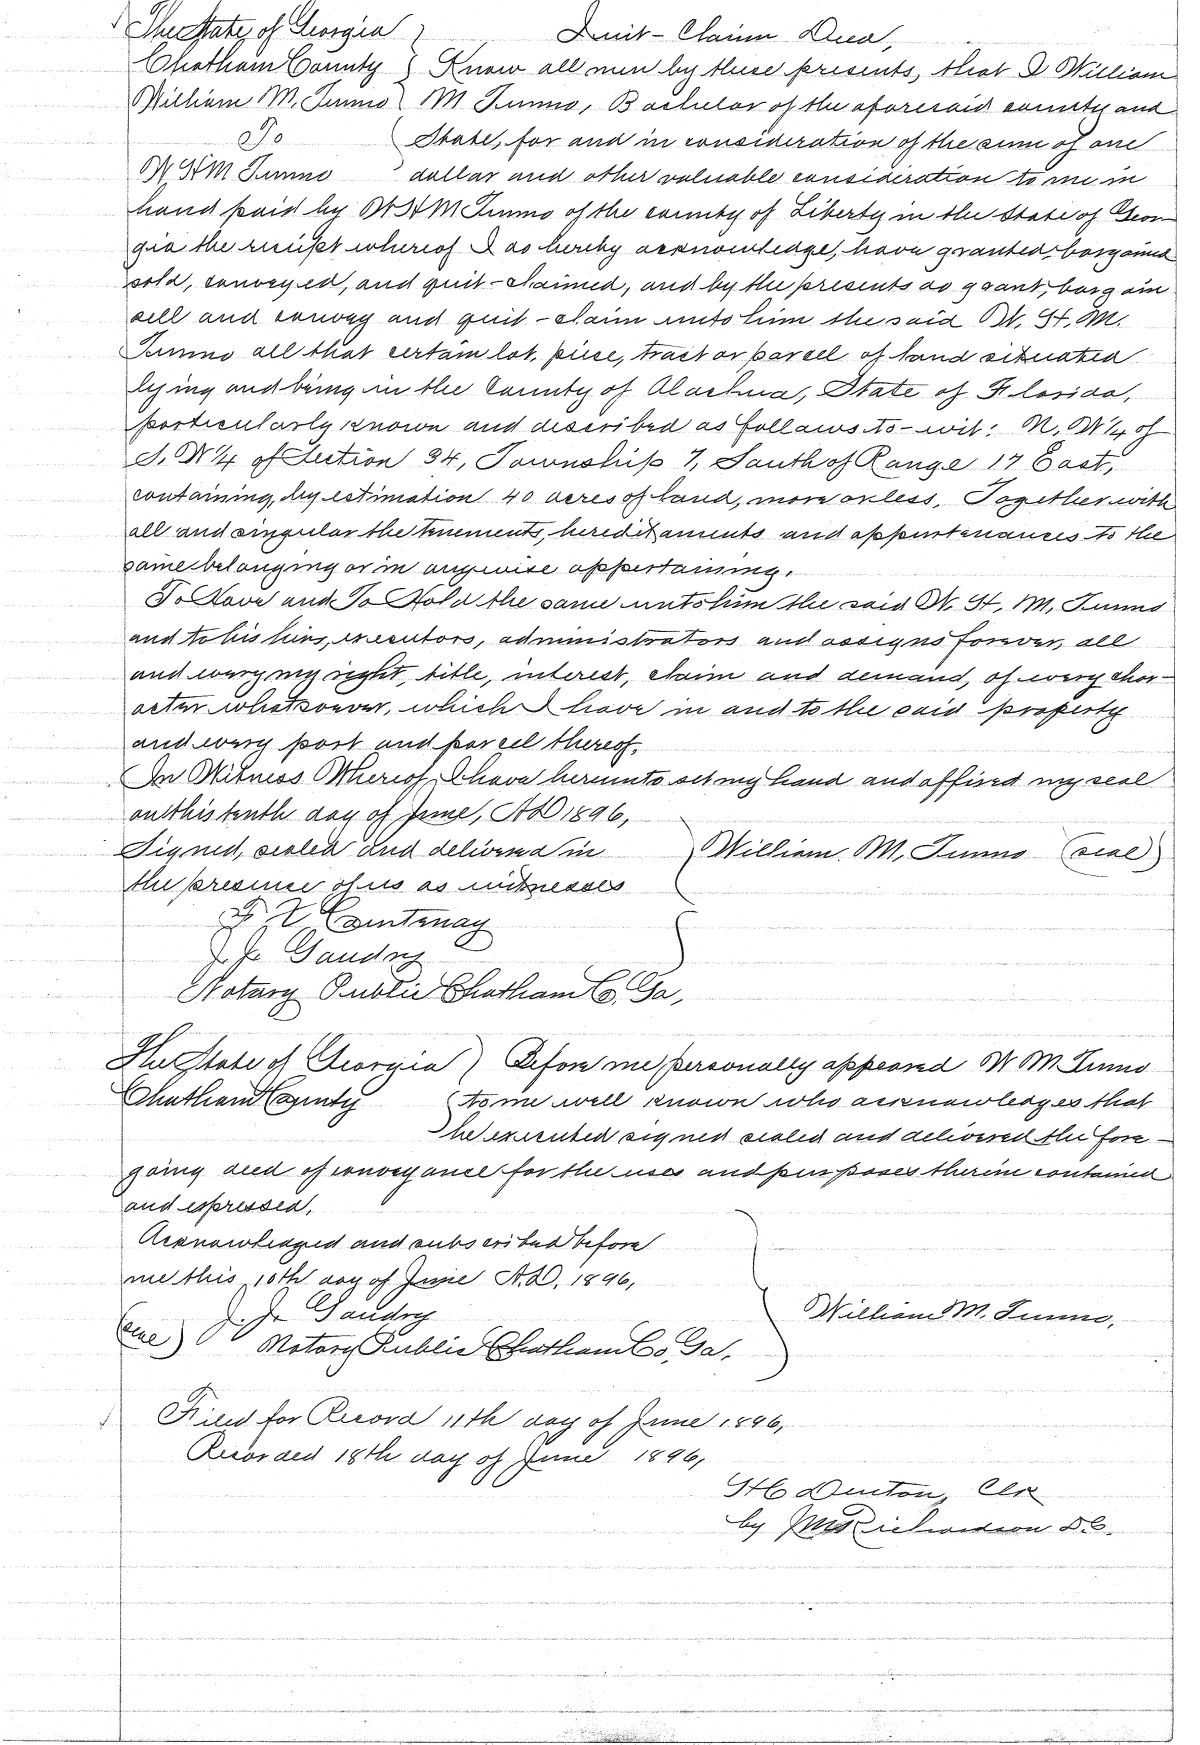 The State of Georgia } Quit-Claim Deed,
Chatham County } Know all men by these presents, that I William
William M. Tunno } M Tunno, Bachelor of the aforesaid county and
To State, for and in consideration of the sum of one
W H M Tunno dollar and other valuable consideration to me in
hand paid by W H M Tunno of the county of Liberty in the State of Geor-
gia the receipt whereof I do hereby acknowledge, have granted, bargained
sold, conveyed, and quit-claimed, and by the presents do grant, bargain
sell and convey and quit-claim unto him the said W. H. M.
Tunno all that certain lot, piece, tract or parcel of land situated
lying and being in the County of Alachua, State of Florida,
particularly known and described as follows to-wit: N. W 1/4 of
S. W 1/4 of Section 34, Township 7, South of Range 17 East,
containing, by estimation 40 acres of land, more or less. Together with
all and singular the tenements, hereditaments and appurtenances to the
same belonging or in anywise appertaining.
To Have and To Hold the same unto him the said W. H. M. Tunno
and to his heirs, executors, administrators and assigns forever, all
and every my right, title, interest, claim and demand, of every char-
acter whatsoever, which I have in and to the said property
and every part and parcel thereof.
In Witness Whereof, I have hereunto set my hand and affixed my seal
on this tenth day of June, A D 1896,
Signed, sealed and delivered in } William M. Tunno (seal)
the presence of us as witnesses
Courtenay
J. J. Gaudry
Notary Public Chatham Co, Ga,
The State of Georgia ) Before me personally appeared W M Tunno
Chatham County to me well known who acknowledges that
he executed signed sealed and delivered the fore-
going deed of conveyance for the uses and purposes therein contained
and expressed.
Acknowledged and subscribed before
me this 10th day of June A.D. 1896,
J. J. Gaudry William M. Tunno,
(seal) Notary Public Chatham Co, Ga,
Filed for Record 11th day of June 1896,
Recorded 18th day of June 1896,
H C Denton, Clk
by J M Richardson D.C.